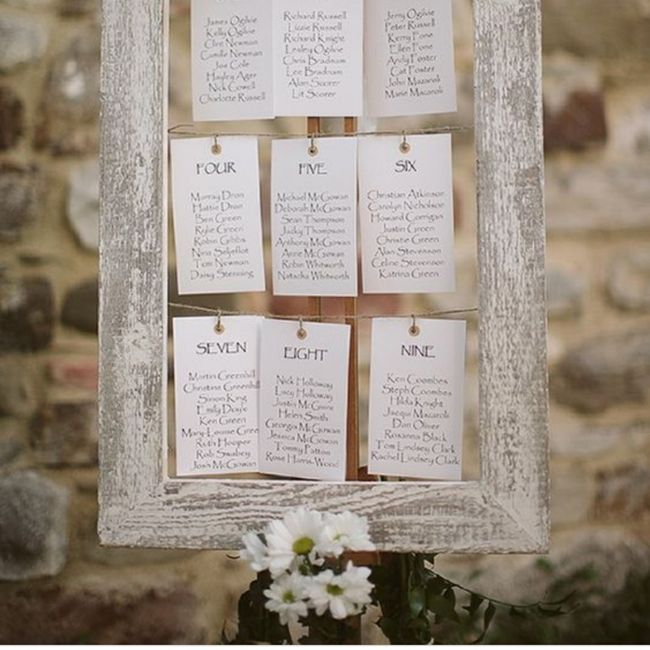 James Ogilvie
Kelly Ogilvie
Clive Newman
Camilla Newman
Joe Cole
Hayley Ager
Nick Cowland
Charlotte Russell
Richard Russell
Lizzie Russell
Richard Knight
Lesley Ogilvie
Chris Bradnam
Lee Bradnam
Alan Scorer
Lit Scorer
Jerry Ogilvie
Peter Russell
Kerry Fone
Ellen Fone
Andy Foster
Cat Foster
John Macaroli
Marie Macaroli
FOUR
Murray Dron
Hattie Dron
Ben Green
Kylie Green
Robin Gibbs
Nina
Tom Newman
Daisy Stenning
FIVE
Michael McGowan
Deborah McGowan
Sean Thompson
Jacky Thompson
Anthony McGowan
Anne McGowan
Robin Whitworth
Natacha Whitworth
SIX
Christian Atkinson
Carolyn Nicholson
Howard Corrigan
Justin Green
Christie Green
Alan Stevenson
Celine Stevenson
Katrina Green
SEVEN
Martin Greenhill
Christina Greenhill
Simon King
Emily Doyle
Ken Green
Mary-Louise Green
Ruth Hooper
Rob Swabey
Josh McGowan
EIGHT
Nick Holloway
Lucy Holloway
Justin McGuire
Helen Smith
Georgia McGowan
Jessica McGowan
Tommy Patton
Rose Harris-Wood
NINE
Ken Coombes
Steph Coombes
Hilda Knight
Jacqui Macaroli
Dan Oliver
Roxanna Black
Tom Lindsey Clark
Rachel Lindsey Clark